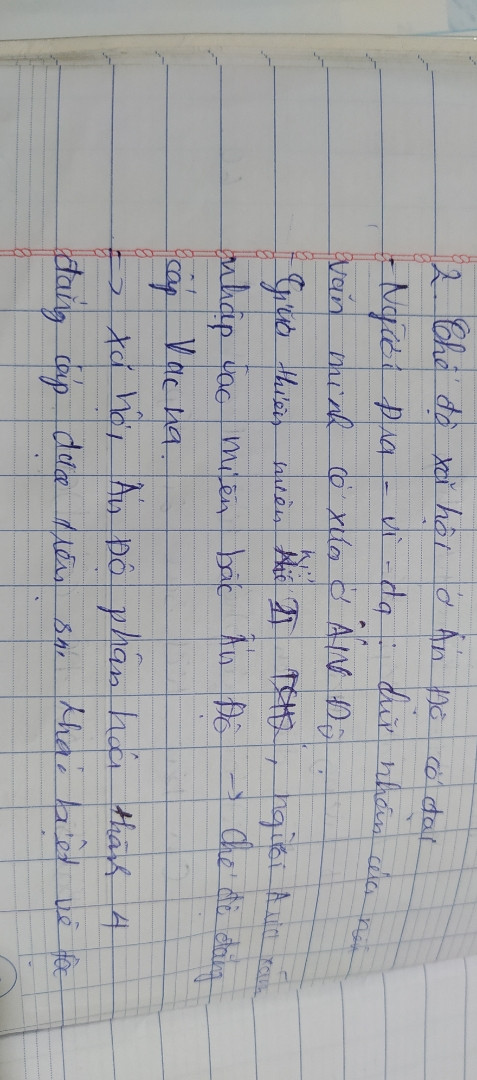 2. Chế độ xã hội ở Ấn Độ cổ đại
- Người Đra - vi - đa : chủ nhân của nền
văn minh cổ xưa ở ẤN Độ
- Giữa thiên niên kỉ II TCN, người Aria xâm
nhập vào miền bắc Ấn Độ → Chế độ đẳng
cấp Vac na.
→ xã hội Ấn Độ phân hoá thành 4
đẳng cấp dựa trên sự khác biệt về tộc